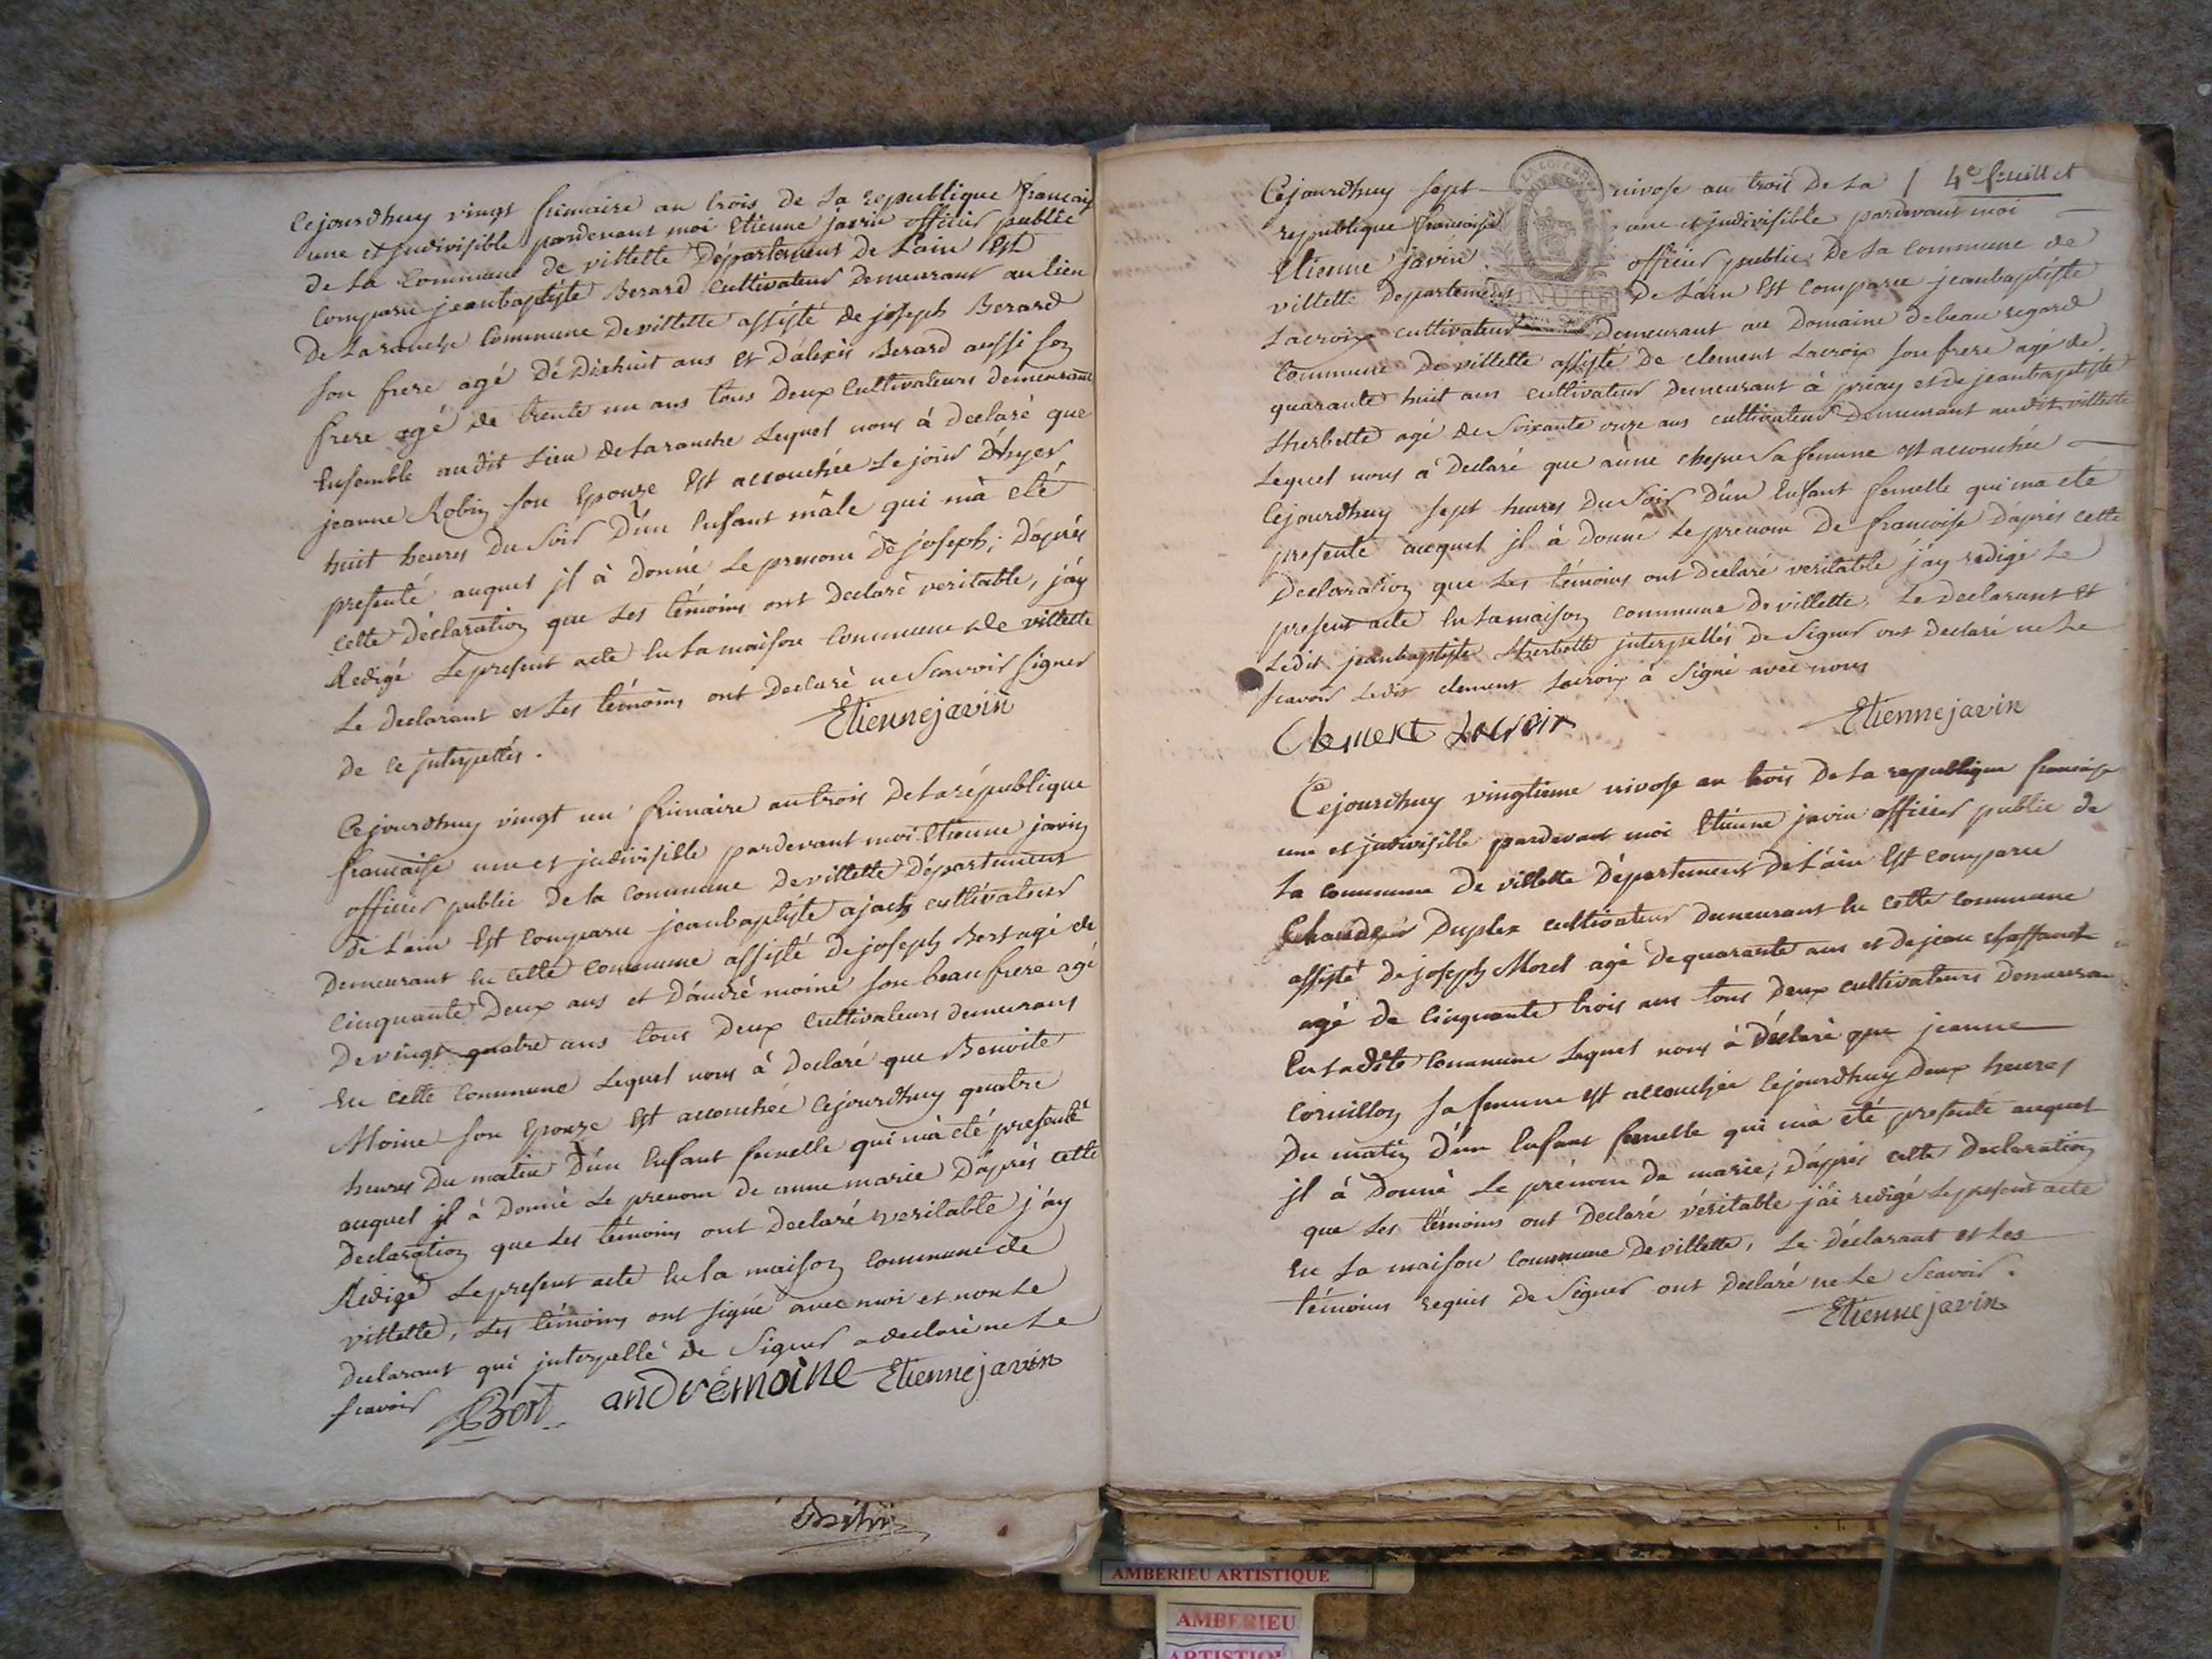 Cejourdhuy vingt frimaire an trois de la republique francaise
une et indivisible pardevant moi Etienne javin officier public
de la commune de villette Département de L'ain Est
comparu jeanbaptiste Berard cultivateur demeurant au lieu
De Laranche commune de villette assisté de joseph Berard
son frere agé dé Dixhuit ans et d'alexis Berard aussi son
frere agé de trente un ans tous Deux cultivateurs demeurant
Ensemble audit Lieu de Laranche Lequel nous à declaré que
jeanne Robin son Epouze Est accouchée Le jour D'hyer
huit heures du Soir D'un Enfant mâle qui m'à eté
presenté auquel il à donné Le prenom de joseph; D'aprés
cette Déclaration que Les témoins ont declaré veritable, j'ay
Redigé Le present acte En La maison commune de villette
Le declarant et Les témoins ont declaré ne Scavoir signer
de ce interpellés.
Etienne javin
Cejourdhuy vingt un frimaire an trois De La république
francaise une et indivisible pardevant moi Etienne javin
officier public de la commune de villette Département
de L'ain Est comparu jeanbaptiste cultivateur
Demeurant En cette commune assisté de joseph Bert agé de
cinquante Deux ans et D'andré moine son beau frere agé
De vingt quatre ans tous Deux cultivateurs demeurans
En cette commune Lequel nous à declaré que Benoite
Moine son Epouze Est accouchée cejourdhuy quatre
heures Du matin D'un Enfant femelle qui m'à eté presenté
auquel il à Donné Le prenom de anne marie D'aprés cette
Declaration que Les témoins ont declaré veritable j'ay
Redigé Le present acte En La maison commune de
villette, Les témoins ont signé avec moi et non Le
declarant qui interpellé de Signer a declaré ne Le
scavoir
Bert andrémoine Etienne javin
4e feuillet
Cejourdhuy sept nivose an trois De La
republique francaise une et indivisible pardevant moi
Etienne javin officier public De La commune de
villette Departement De L'ain Est comparu jeanbaptiste
Lacroix cultivateur Demeurant au Domaine de beau regard
commune De villette assisté De clement Lacroix son frere agé de
quarante huit ans cultivateur Demeurant à priay et de jeanbaptiste
Lherbette agé de Soixante onze ans cultivateur Demeurant audit villette
Lequel nous a declaré que Sa femme est accouchée
Cejourdhuy sept heures Du Soir D'un Enfant femelle qui ma eté
presenté auquel il à Donné Le prenom De francoise D'aprés cette
Declaration que Les témoins ont declaré veritable j'ay redigé Le
present acte En La maison commune De villette, Le declarant et
Ledit jeanbaptiste Lherbette interpellés De Signer ont declaré ne Le
scavoir Ledit clement Lacroix à Signé avec nous
Clement Lacroix Etienne javin
Cejourdhuy vingtieme nivose an trois De La republique francaise
une et indivisible pardevant moi Etienne javin officier public de
La commune De villette Département De L'ain Est comparu
Duplex cultivateur demeurant En cette commune
assisté de joseph Morel agé De quarante ans et de jean
agé De cinquante trois ans tous Deux cultivateurs Demeurans
En Ladite commune Lequel nous à Déclaré que jeanne
Cornillon Sa femme est accouchée Cejourdhuy Deux heures
Du matin D'un Enfant femelle qui m'à eté presenté auquel
il à Donné Le prénom de marie; D'aprés cette Declaration
que Les témoins ont declaré véritable j'ai redigé Le present acte
En La maison commune De villette, Le déclarant et Les
témoins requis De Signer ont declaré ne Le Scavoir.
Etienne javin
MINUTE
AMBERIEU ARTISTIQUE
AMBERIEU
ARTISTIQUE